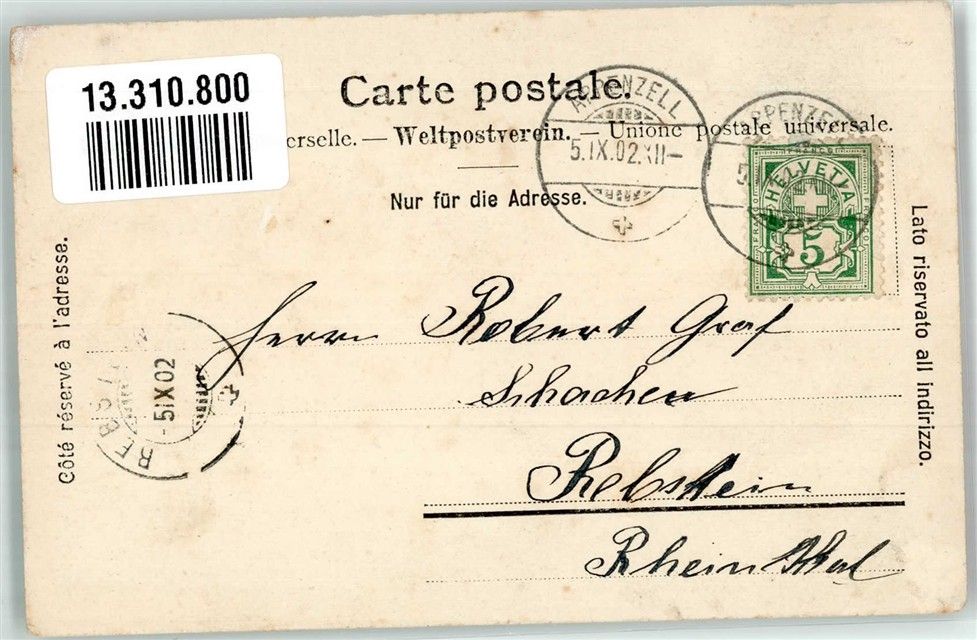 13.310.800
Carte postale.
erselle. — Weltpostverein. — Unione postale universale.
Nur für die Adresse.
APPENZELL
5.IX.02.XII–
APPENZELL
5
HELVETIA
FRANCO
5
Côté réservé à l'adresse.
Lato riservato all indirizzo.
Herrn Robert Graf
Schachen
Rebstein
Rheinthal
-5IX02